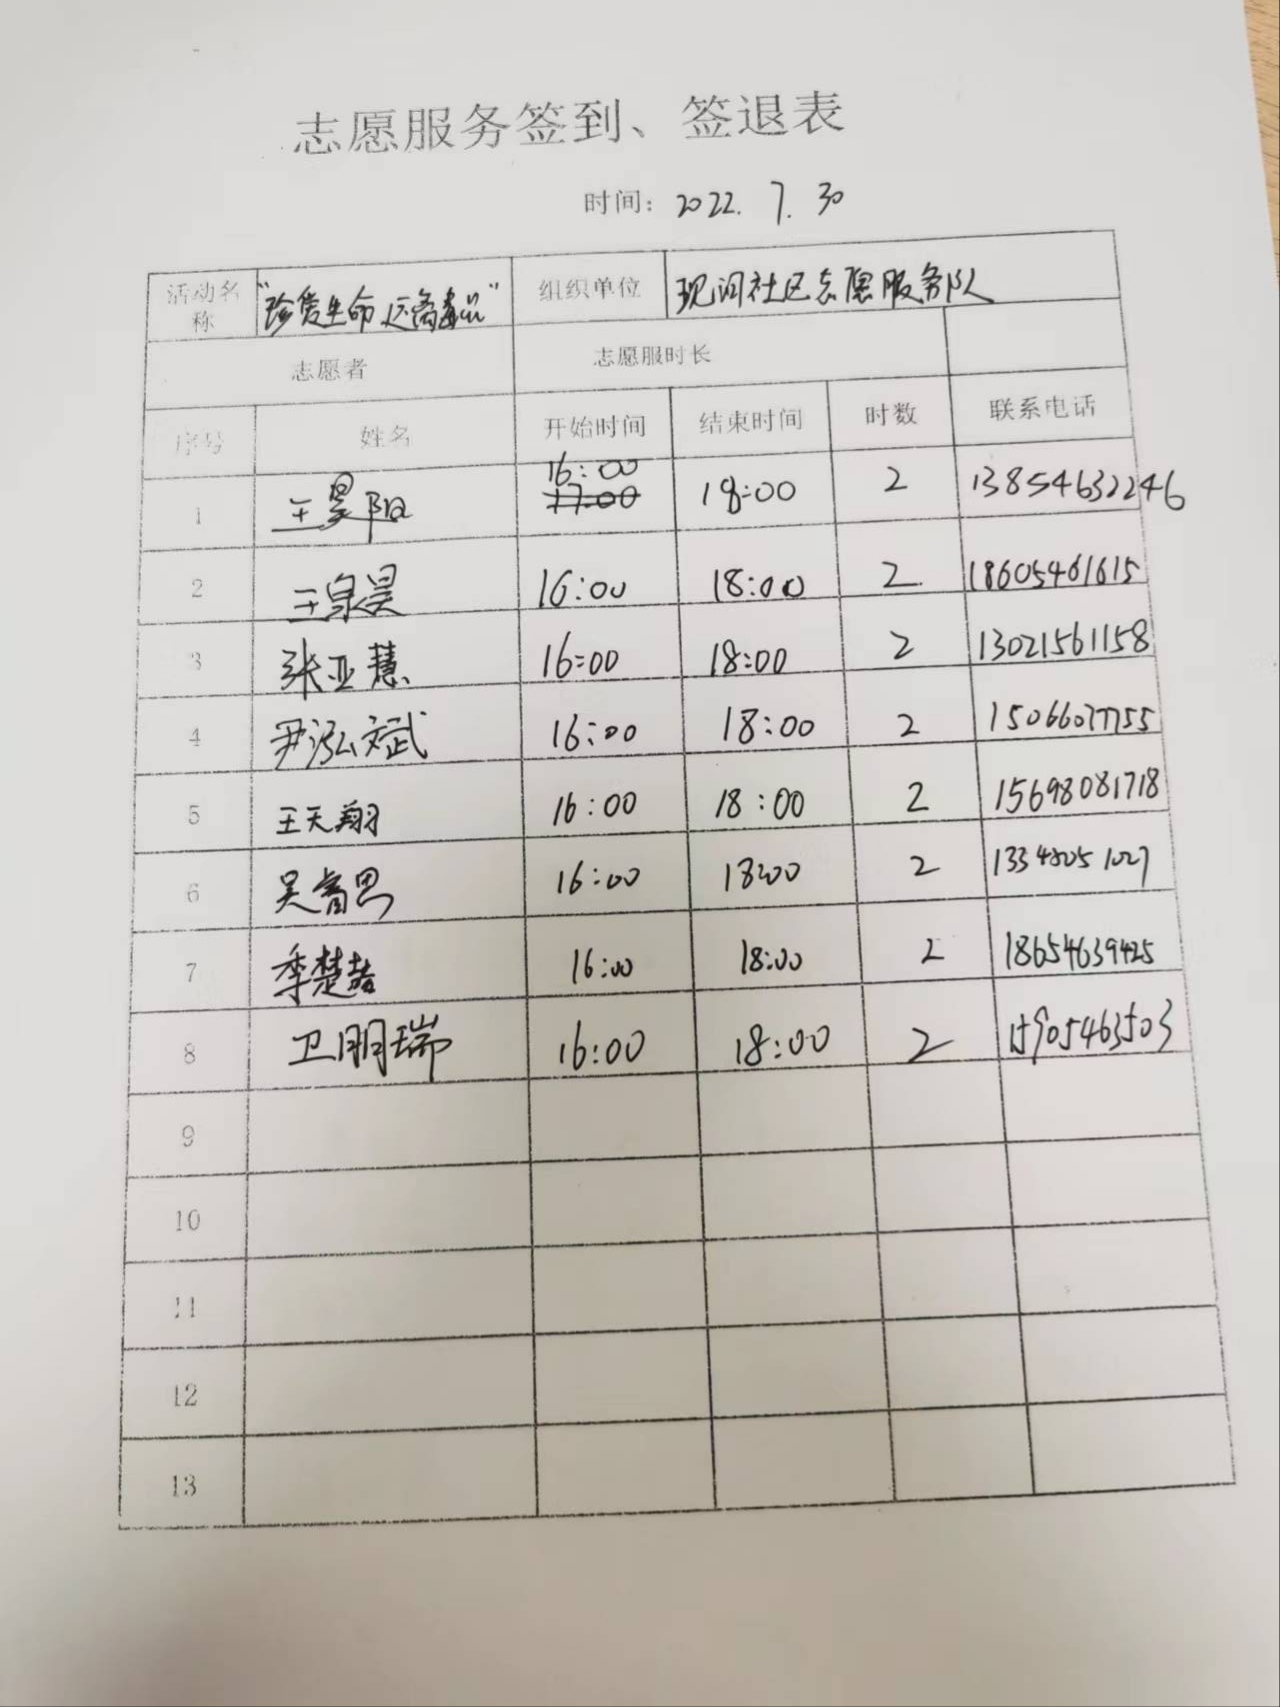 志愿服务签到、签退表
时间: 2022. 7. 30
活动名称 "珍爱生命 远离毒品" 组织单位 现河社区志愿服务队
志愿者 志愿服时长
序号 姓名 开始时间 结束时间 时数 联系电话
1 王昊阳 16:00 17:00 18:00 2 13854632246
2 王泉昊 16:00 18:00 2 18605461615
3 张亚慧 16:00 18:00 2 13021561158
4 尹泓斌 16:00 18:00 2 15066077755
5 王天翔 16:00 18:00 2 15698081718
6 吴睿思 16:00 18:00 2
7 季楚喆 16:00 18:00 2 18654639425
8 卫朋瑞 16:00 18:00 2 15905463503
9
10
11
12
13